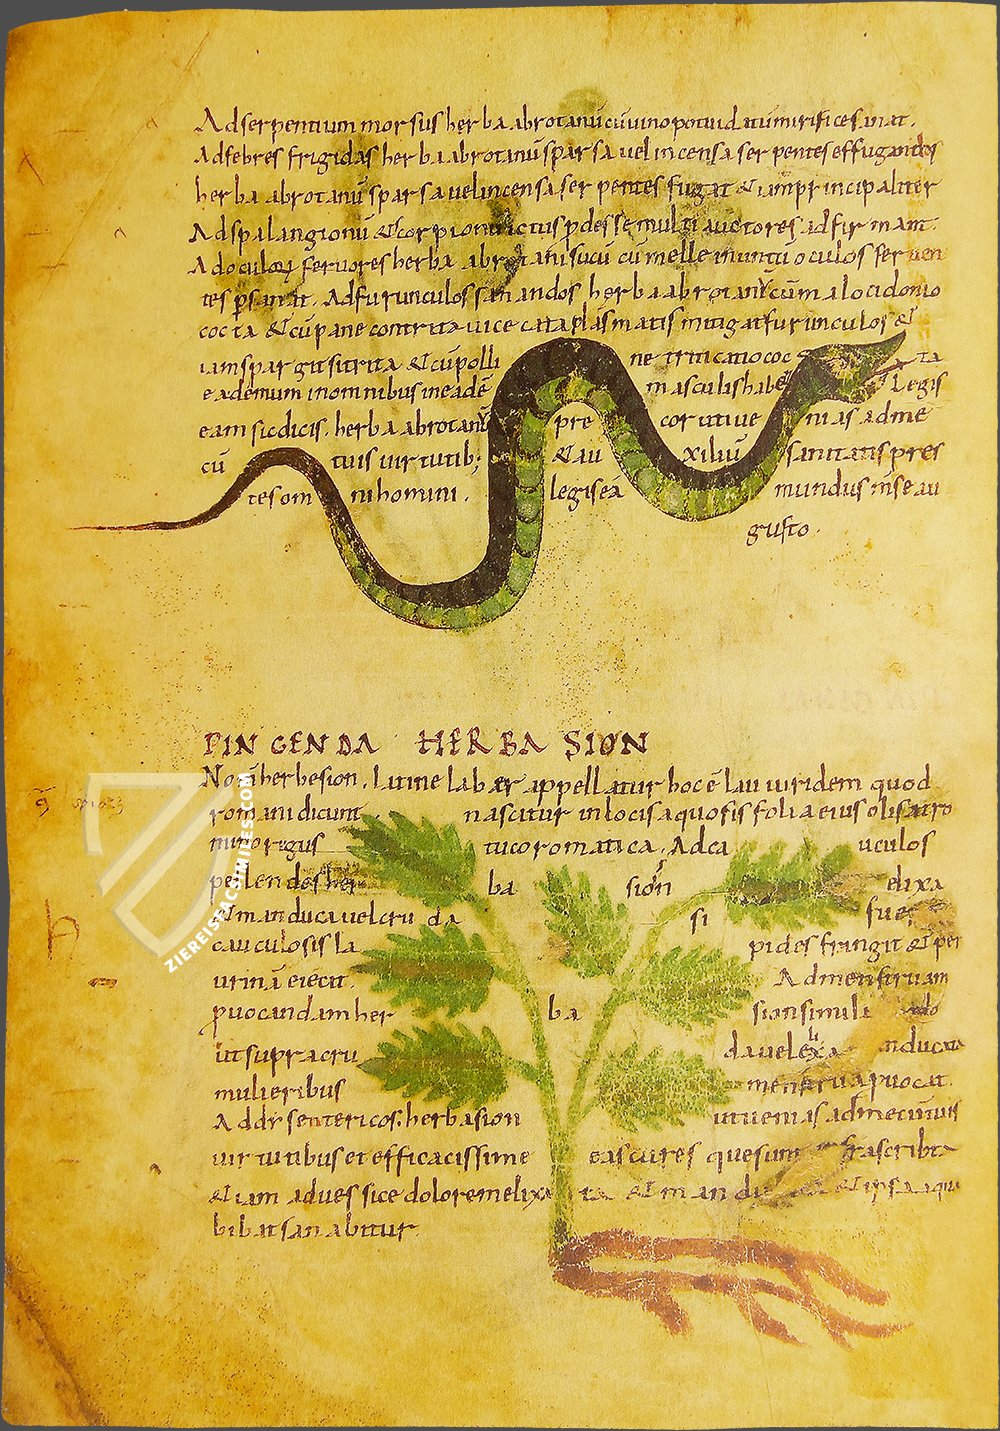 Ad serpentium morsus herba abrotanū cū uino potui datū mirifice sanat.
Ad febres frigidas herba abrotanū sparsa uel incensa serpentes effugandos
herba abrotanū sparsa uel incensa serpentes fugat & iam principaliter
Ad spalangionū & scorpionū ictus ꝓdesse multi auctores adfirmant.
Ad oculoꝝ feruores herba abrotani sucū cū melle inunctū oculos feruen
tes ꝑsanat. Ad furunculos sanandos herba abrotanū cum alo cidonio
cocta & cū pane contrita uice cataplasmatis mitigat furunculos &
iam spargit si trita & cū polli ne triticatio coc ta
eademum in omnibus in eadē masculis habe Legis
eam sic dicis. herba abrotanū pre cor uti ue nias ad me
cū tuis uirtutib; & au xiliū sanitatis pres
tes om ni homini. legis eā mundus mse au
gusto.
PINGENDA HERBA SION
Nom̄ herbe sion. Latine laber appellatur hoc ē lau uiridem quod
romani dicunt nascitur in locis aquosis folia eius olisatro
minori gus tuc oromatica. Ad ca uculos
pellendos her ba sion elixa
& manduca uel cru da si fue
cauculosis la pides frangit & per
urinā eiecit. Ad menstruam
ꝓuocandam her ba sion simili do
ut supra cru da uel elixa nducata
mulieribus menstrua ꝓuocat.
Ad disentericos. herba sion ut uenias ad me cū tuis
uirtutibus et efficacissime ea s cures que sum frascribta
& iam ad uessice dolorem elixa ta & mandu & ipsa aqua
bibat sanabitur
h
ZIEREISFACSIMILES.COM